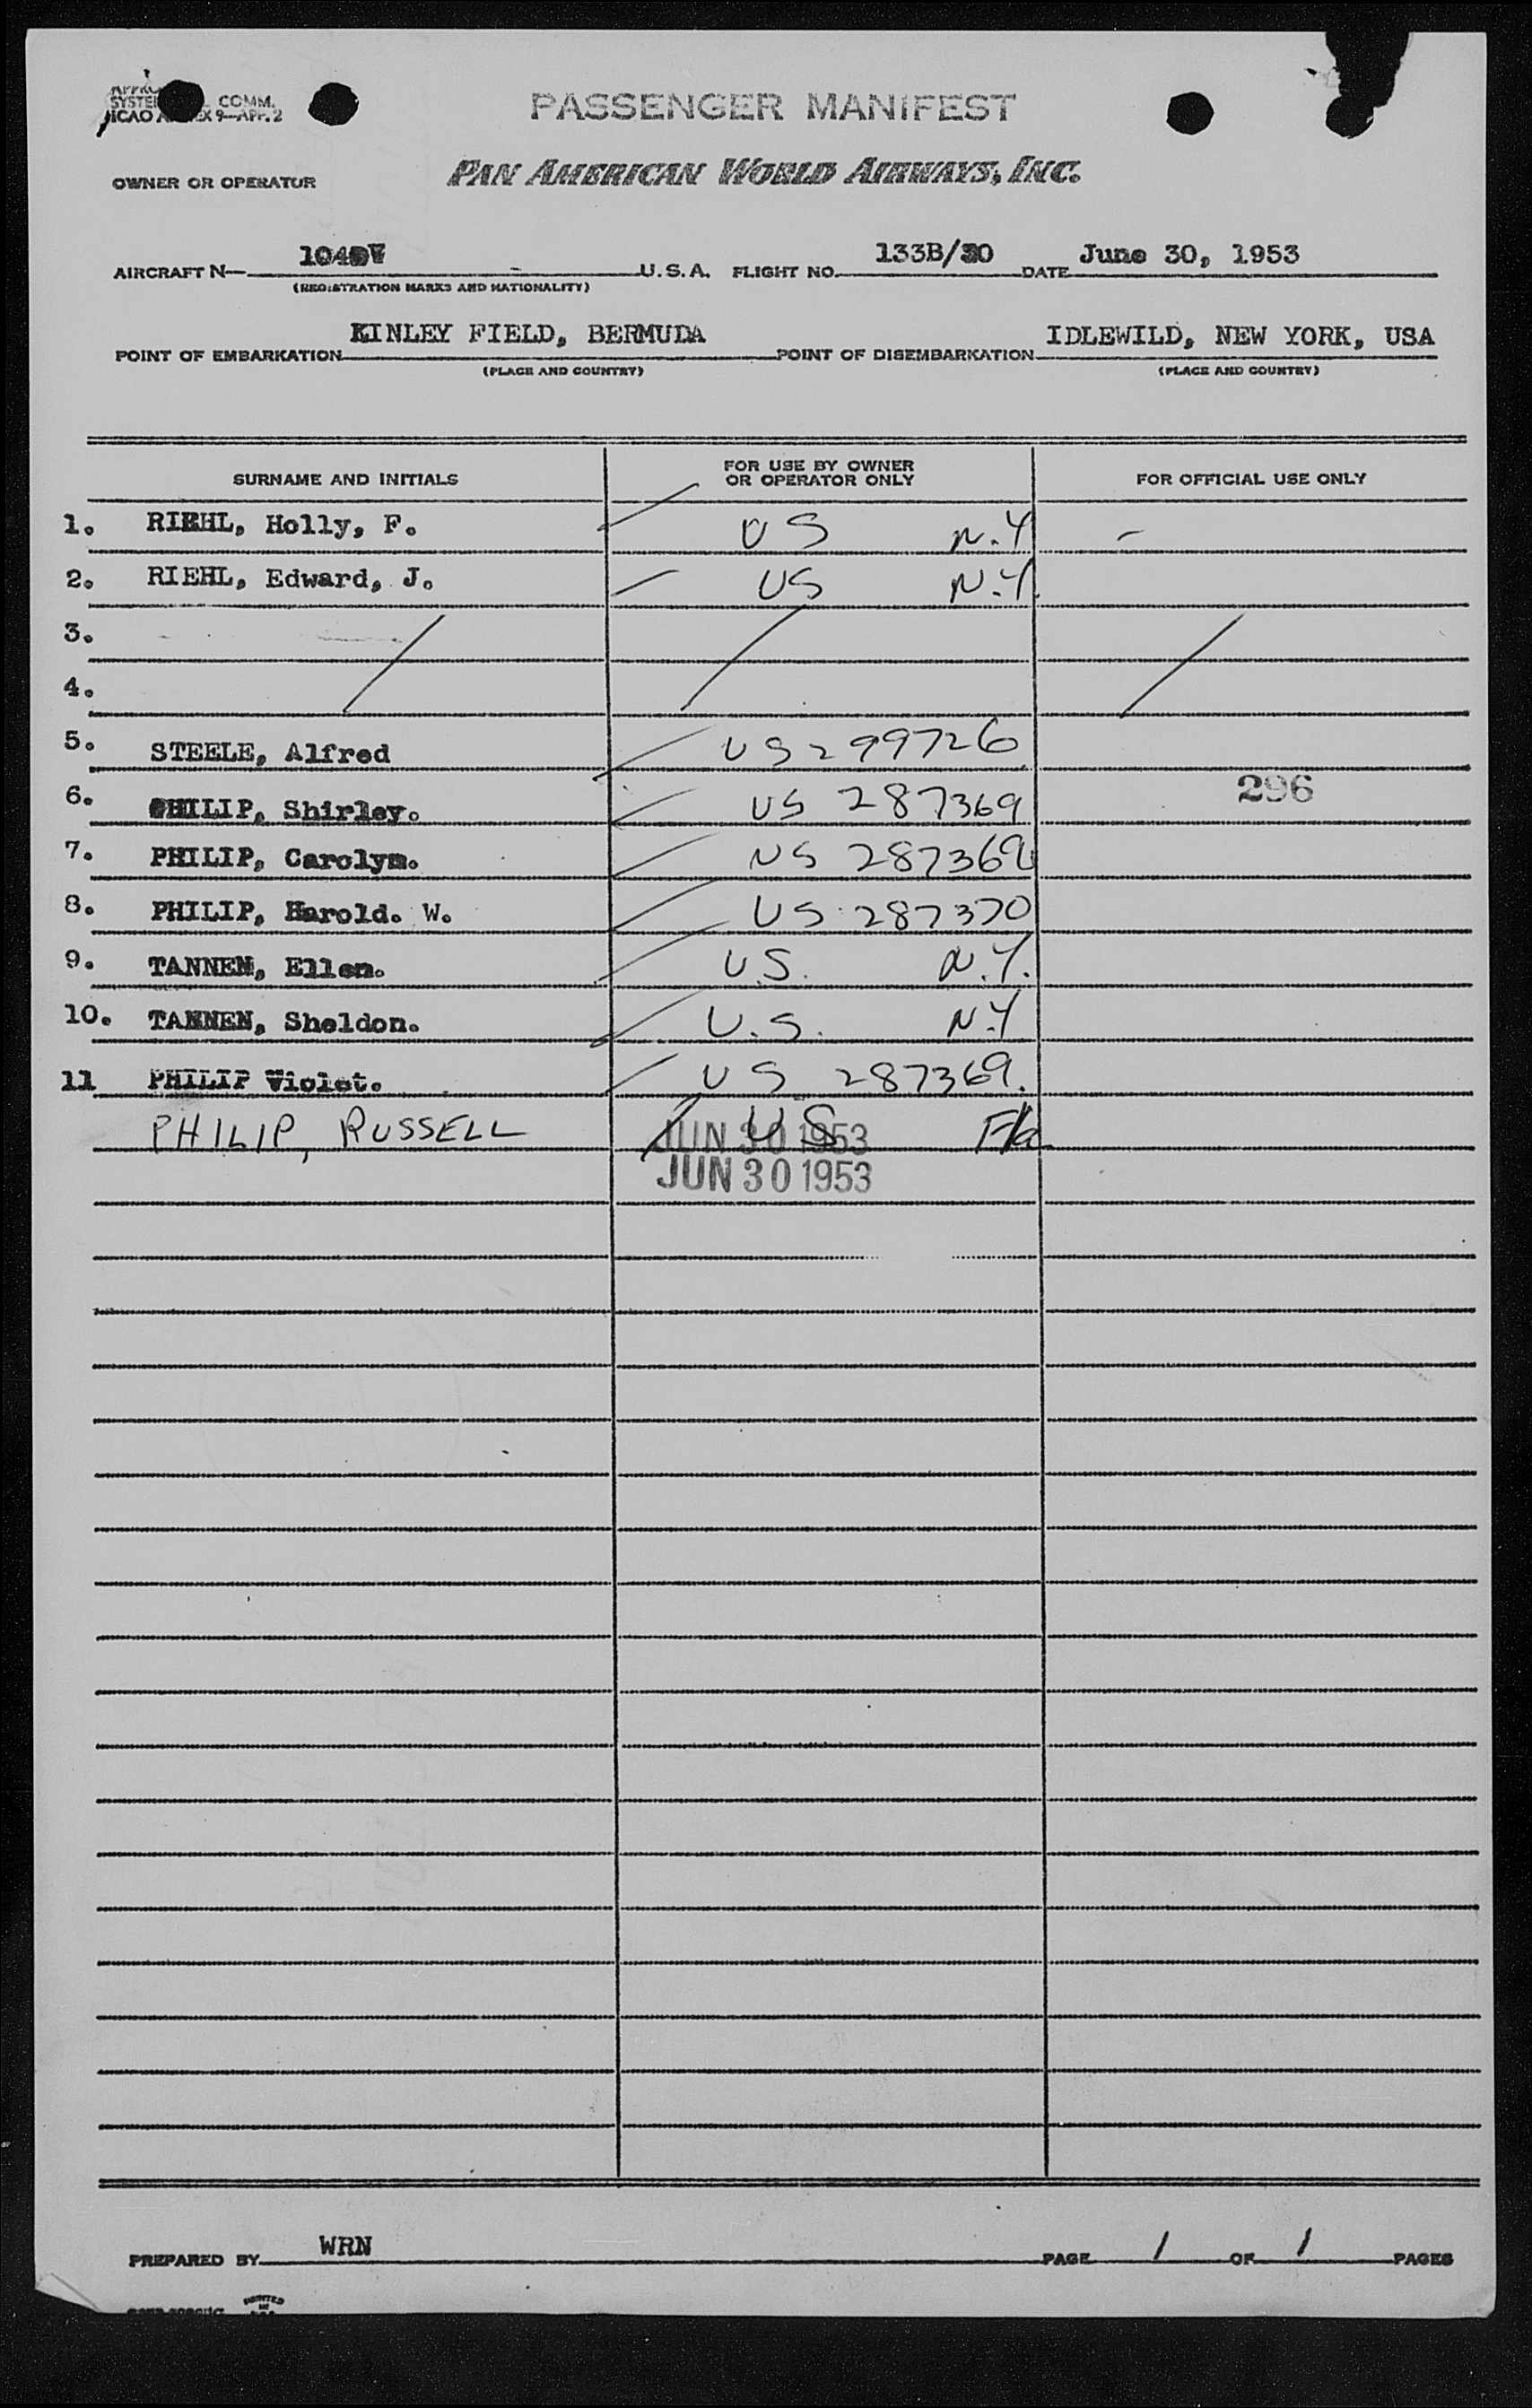 SYSTE COMM.
ICAO A EX 9—APP. 2
PASSENGER MANIFEST
OWNER OR OPERATOR PAN AMERICAN WORLD AIRWAYS, INC.
AIRCRAFT N— U.S.A. FLIGHT NO. 133B/30 DATE June 30, 1953
(REGISTRATION MARKS AND NATIONALITY)
POINT OF EMBARKATION KINLEY FIELD, BERMUDA POINT OF DISEMBARKATION IDLEWILD, NEW YORK, USA
(PLACE AND COUNTRY) (PLACE AND COUNTRY)
SURNAME AND INITIALS FOR USE BY OWNER OR OPERATOR ONLY FOR OFFICIAL USE ONLY
1. RIEHL, Holly, F. US N.Y —
2. RIEHL, Edward, J. US N.Y.
3.
4.
5. STEELE, Alfred US 299726
6. PHILIP, Shirley. US 287369 296
7. PHILIP, Carolyn. US 287369
8. PHILIP, Harold. W. US 287370
9. TANNEN, Ellen. U.S. N.Y.
10. TANNEN, Sheldon. U.S. N.Y
11 PHILIP Violet. US 287369.
PHILIP, RUSSELL US Fla
JUN 30 1953
JUN 30 1953
PREPARED BY WRN PAGE 1 OF 1 PAGES
PRINTED